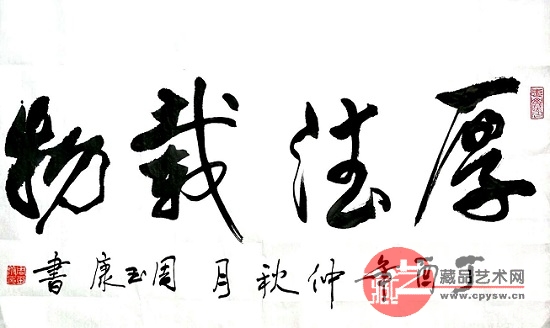 厚德载物
丁酉年仲秋月周玉康书
藏品艺术网
www.cpysw.cn